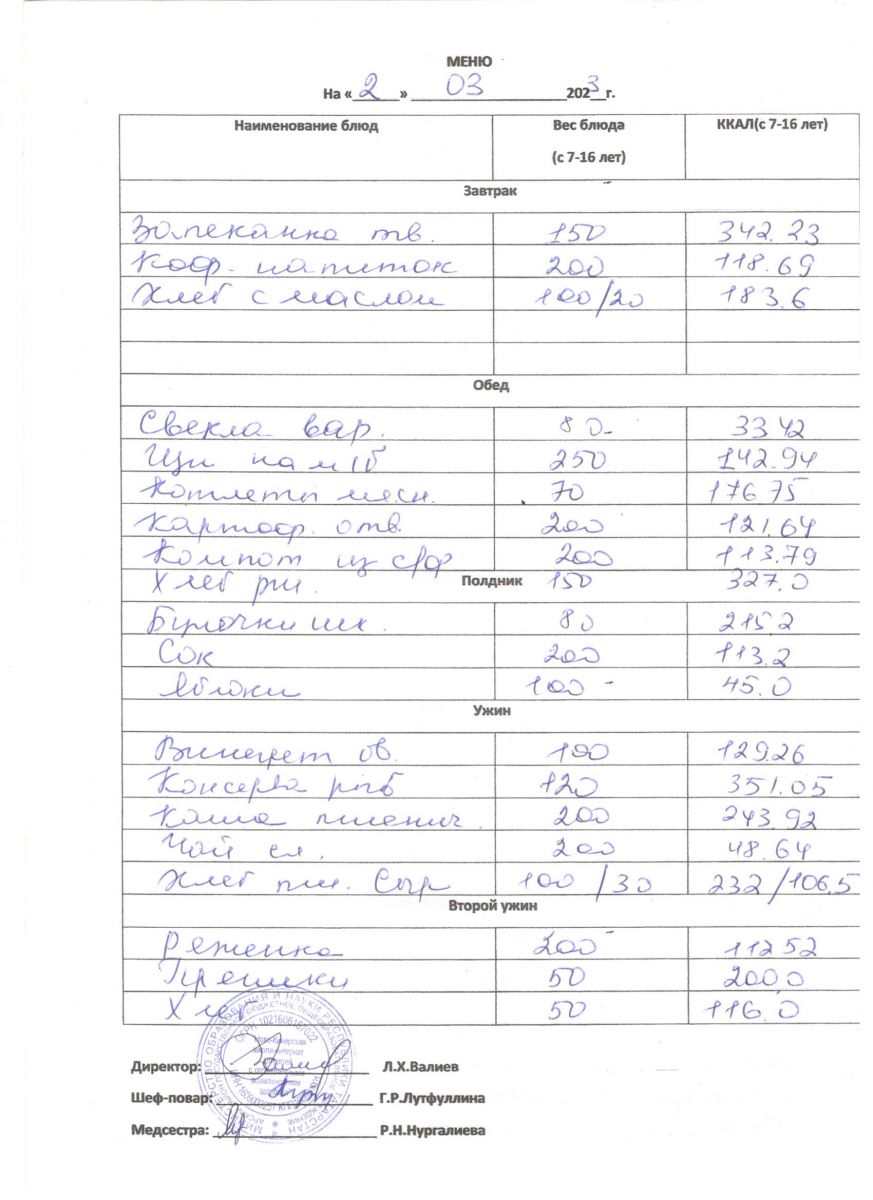 МЕНЮ
На « 2 » 03 2023 г.
Наименование блюд Вес блюда (с 7-16 лет) ККАЛ(с 7-16 лет)
Завтрак
Запеканка тв. 150 342.23
Коф. напиток 200 118.69
Хлеб с маслом 100/20 183.6
Обед
Свекла вар. 80 33 42
Щи на м/б 250 142.94
Котлеты мясн. 70 176 75
Картоф. отв. 200 121.64
Компот из с/ф 200 113.79
Хлеб рж. 150 327.0
Полдник
Булочки шк. 80 215 2
Сок 200 113.2
Яблоки 100 45.0
Ужин
Винегрет ов. 100 129.26
Консерва рыб 120 351.05
Каша пшенич. 200 243.92
Чай сл. 200 48.64
Хлеб пш. Сыр 100 /30 232/106.5
Второй ужин
Ряженка 200 112 52
Пряники 50 200 0
Хлеб 50 116.0
Директор: Л.Х.Валиев
Шеф-повар: Г.Р.Лутфуллина
Медсестра: Р.Н.Нургалиева